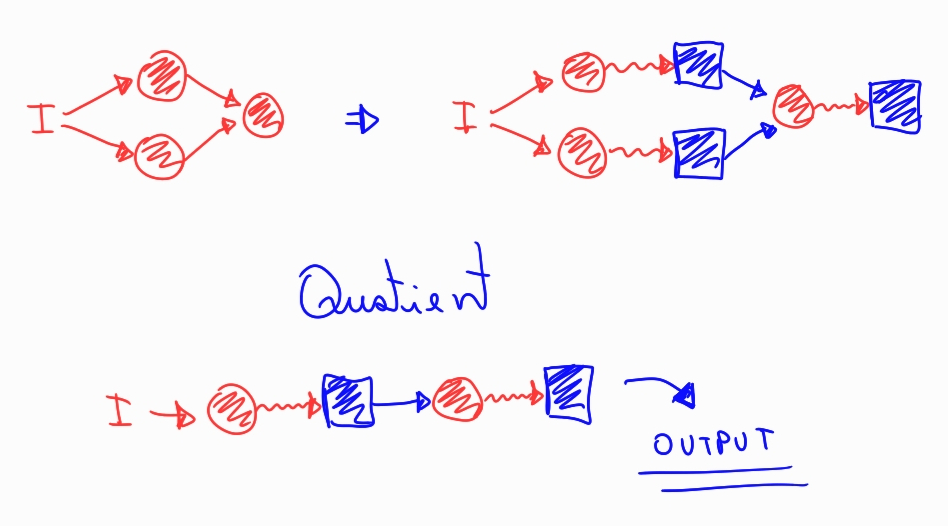 I I
Quotient
I
OUTPUT